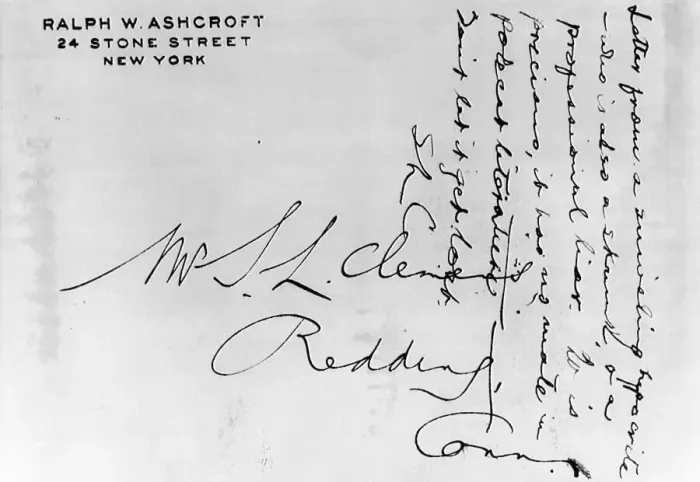 RALPH W. ASHCROFT
24 STONE STREET
NEW YORK
Mr S. L. Clemens,
Redding,
Conn.
Letter from a sniveling hypocrite
—who is also a skunk, & a
professional liar. It is
precious, it has no mate in
polecat literature.
Don't let it get lost.
SLC